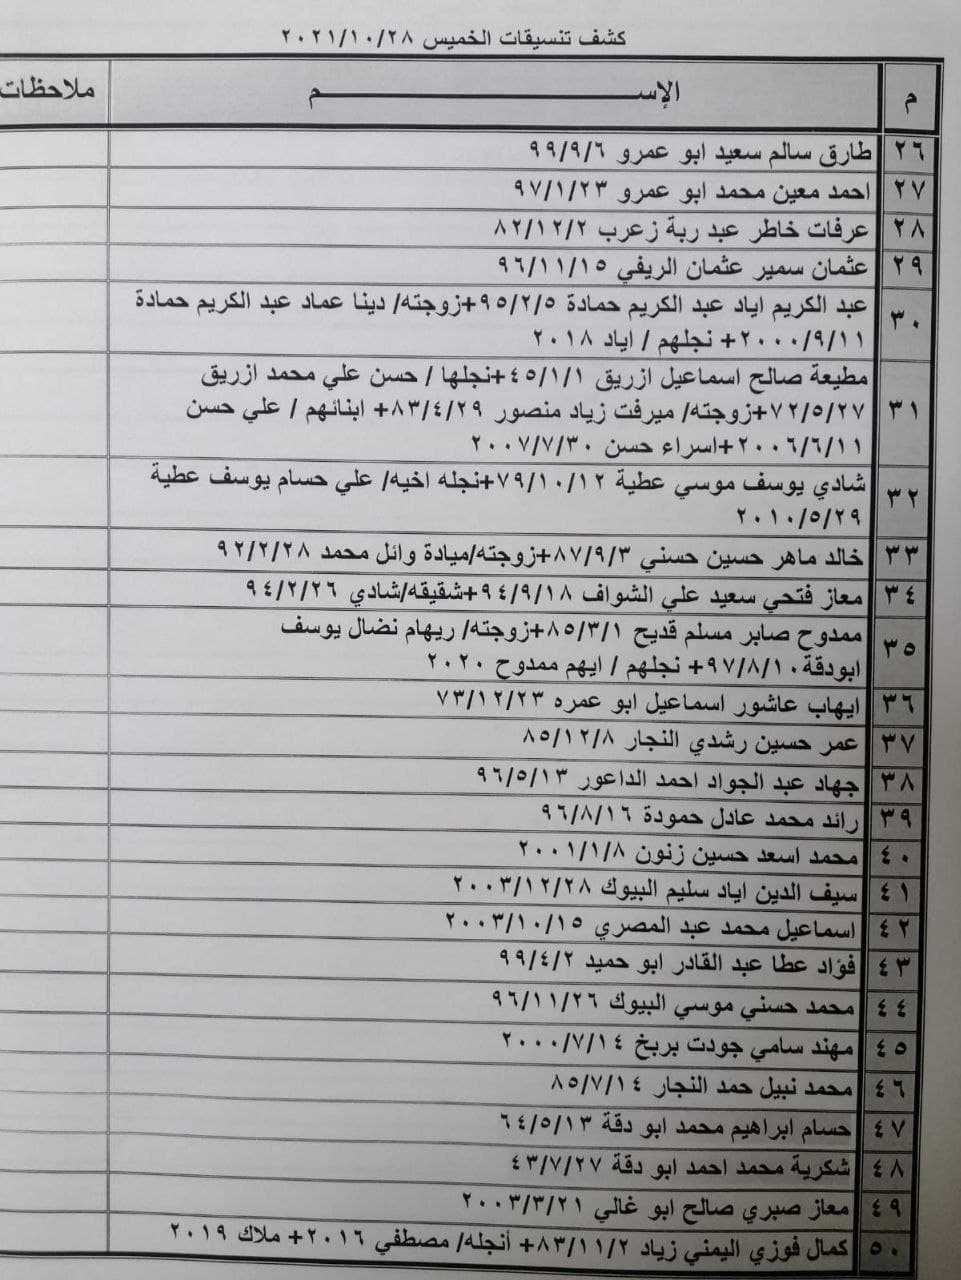 كشف تنسيقات الخميس ٢٠٢١/١٠/٢٨
م الإســـــم ملاحظات
٢٦ طارق سالم سعيد ابو عمرو ٩٩/٩/٦
٢٧ احمد معين محمد ابو عمرو ٩٧/١/٢٣
٢٨ عرفات خاطر عبد ربة زعرب ٨٢/١٢/٢
٢٩ عثمان سمير عثمان الريفي ٩٦/١١/١٥
٣٠ عبد الكريم اياد عبد الكريم حمادة ٩٥/٢/٥+زوجته/ دينا عماد عبد الكريم حمادة
٢٠٠٠/٩/١١+ نجلهم / اياد ٢٠١٨
٣١ مطيعة صالح اسماعيل ازريق ٤٥/١/١+نجلها / حسن علي محمد ازريق
٧٢/٥/٢٧+زوجته/ ميرفت زياد منصور ٨٣/٤/٢٩+ ابنائهم / علي حسن
٢٠٠٦/٦/١١+اسراء حسن ٢٠٠٧/٧/٣٠
٣٢ شادي يوسف موسي عطية ٧٩/١٠/١٢+نجله اخيه/ علي حسام يوسف عطية
٢٠١٠/٥/٢٩
٣٣ خالد ماهر حسين حسني ٨٧/٩/٣+زوجته/ميادة وائل محمد ٩٢/٢/٢٨
٣٤ معاز فتحي سعيد علي الشواف ٩٤/٩/١٨+شقيقه/شادي ٩٤/٢/٢٦
٣٥ ممدوح صابر مسلم قديح ٨٥/٣/١+زوجته/ ريهام نضال يوسف
ابودقة٩٧/٨/١٠+ نجلهم / ايهم ممدوح ٢٠٢٠
٣٦ ايهاب عاشور اسماعيل ابو عمره ٧٣/١٢/٢٣
٣٧ عمر حسين رشدي النجار ٨٥/١٢/٨
٣٨ جهاد عبد الجواد احمد الداعور ٩٦/٥/١٣
٣٩ رائد محمد عادل حمودة ٩٦/٨/١٦
٤٠ محمد اسعد حسين زنون ٢٠٠١/١/٨
٤١ سيف الدين اياد سليم البيوك ٢٠٠٣/١٢/٢٨
٤٢ اسماعيل محمد عبد المصري ٢٠٠٣/١٠/١٥
٤٣ فؤاد عطا عبد القادر ابو حميد ٩٩/٤/٢
٤٤ محمد حسني موسي البيوك ٩٦/١١/٢٦
٤٥ مهند سامي جودت بربخ ٢٠٠٠/٧/١٤
٤٦ محمد نبيل حمد النجار ٨٥/٧/١٤
٤٧ حسام ابراهيم محمد ابو دقة ٦٤/٥/١٣
٤٨ شكرية محمد احمد ابو دقة ٤٣/٧/٢٧
٤٩ معاز صبري صالح ابو غالي ٢٠٠٣/٣/٢١
٥٠ كمال فوزي اليمني زياد ٨٣/١١/٢+ أنجله/ مصطفي ٢٠١٦+ ملاك ٢٠١٩